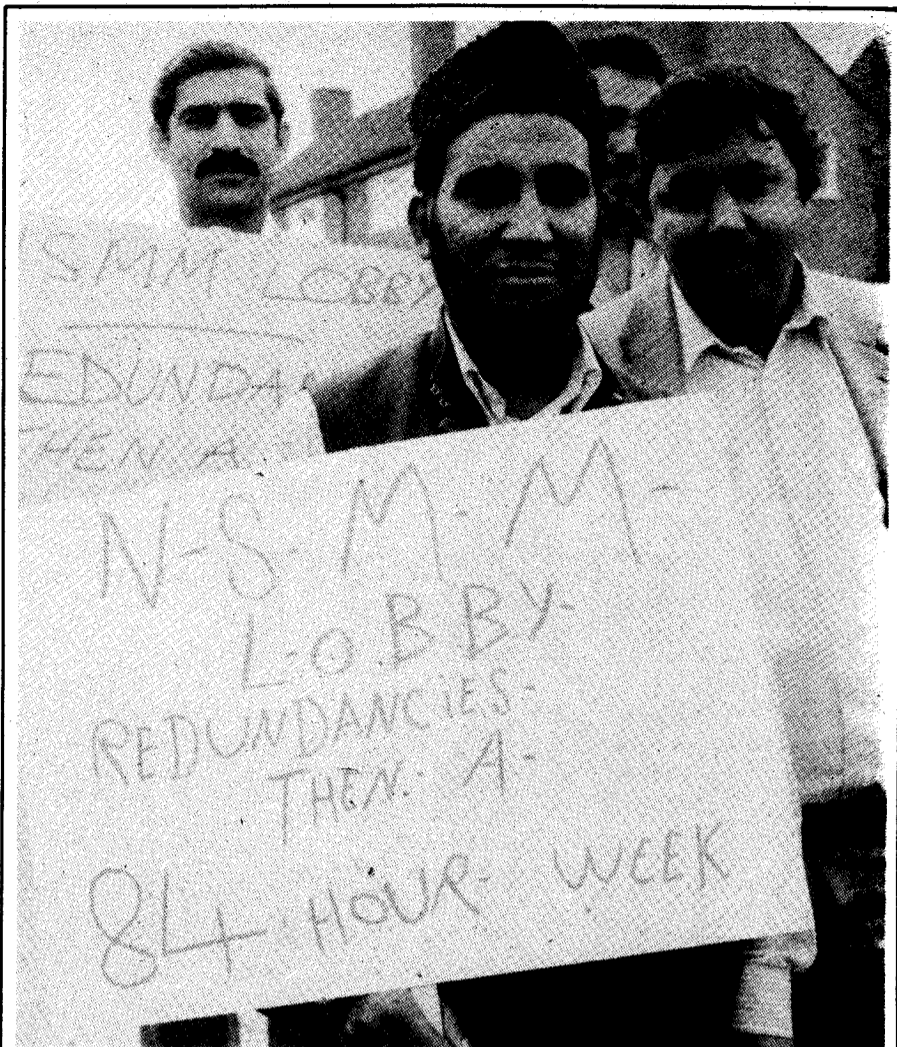 SMM LOBBY
EDUNDAN
THEN A
N-S-M-M-
L.O.B.BY-
REDUNDANCiES-
THEN: A-
84 HOUR- WEEK